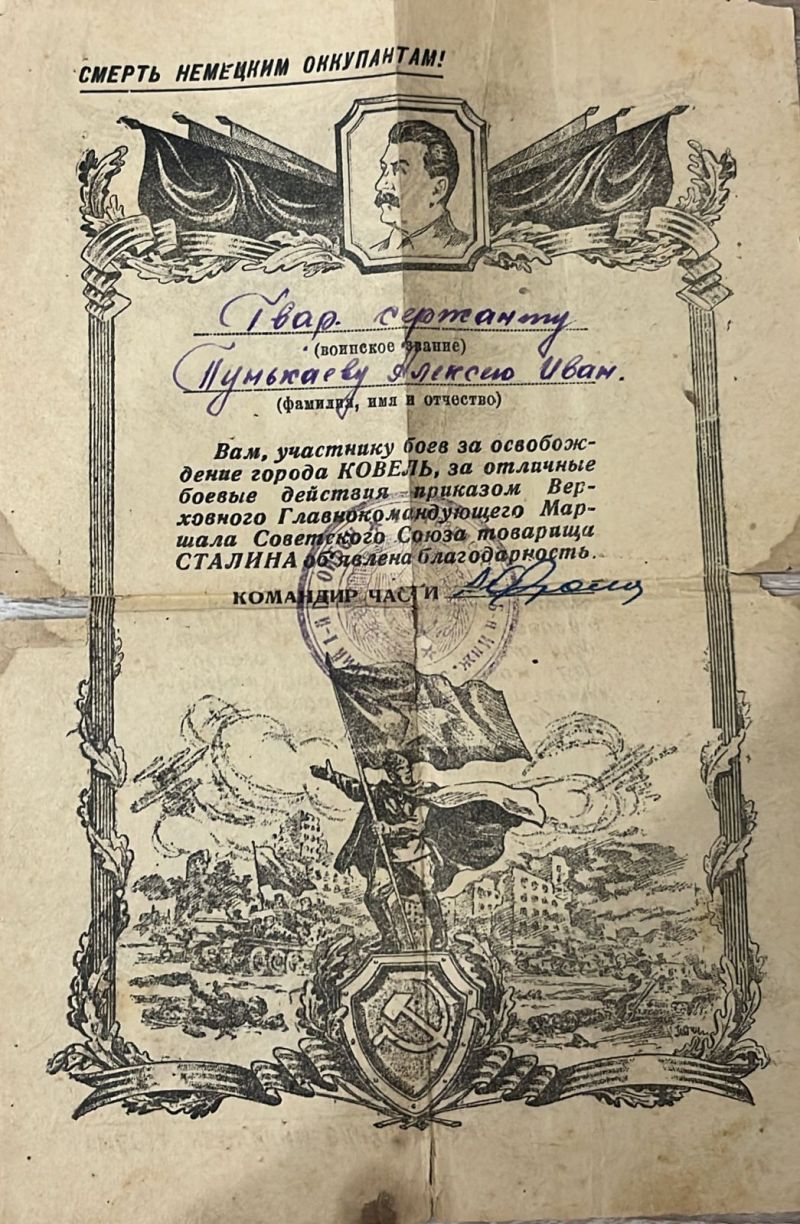 СМЕРТЬ НЕМЕЦКИМ ОККУПАНТАМ!
Гвар. сержанту
(воинское звание)
Пунькаеву Алексею Иван.
(фамилия, имя и отчество)
Вам, участнику боев за освобож-
дение города КОВЕЛЬ, за отличные
боевые действия приказом Вер-
ховного Главнокомандующего Мар-
шала Советского Союза товарища
СТАЛИНА об'явлена благодарность.
КОМАНДИР ЧАСТИ